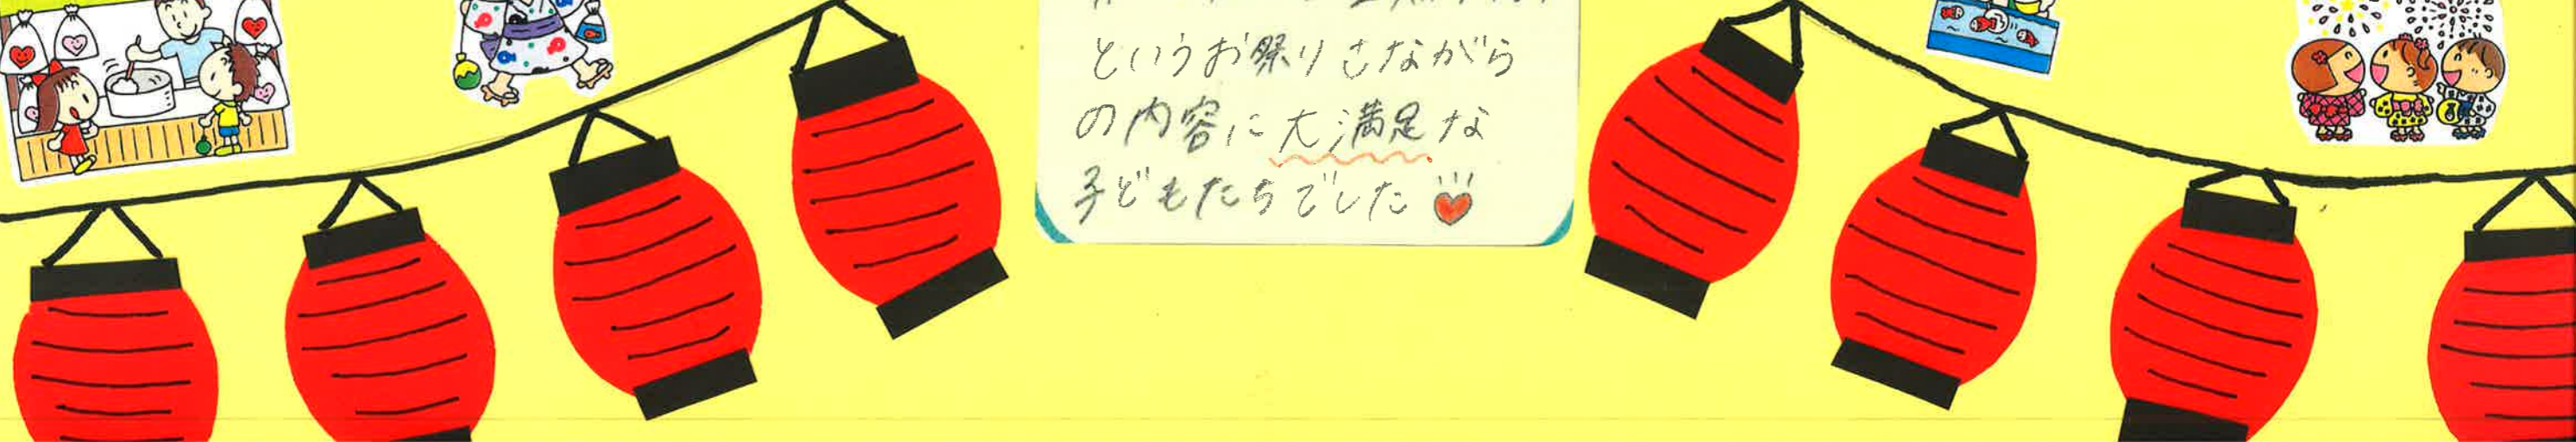 というお祭りさながら
の内容に大満足な
子どもたちでした